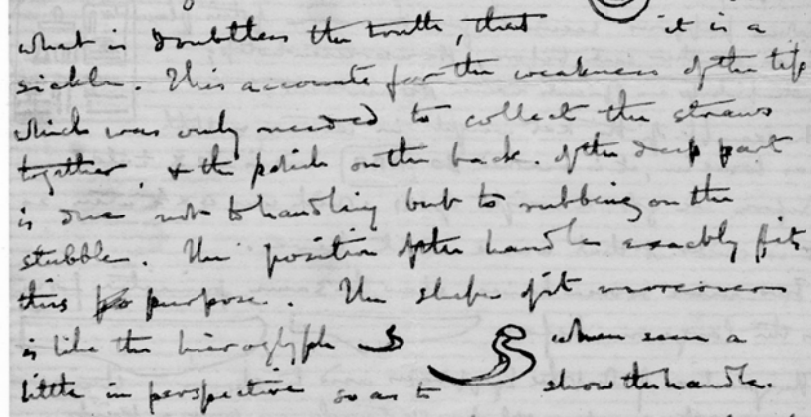 what is doubtless the truth, that it is a
sickle. This accounts for the weakness of the tip
which was only needed to collect the straws
together, & the polish on the back. of the deep part
is due not to handling but to rubbing on the
stubble. The position of the handle exactly fits
this purpose. The shape of it moreover
is like the hieroglyph when seen a
little in perspective so as to show the handle.